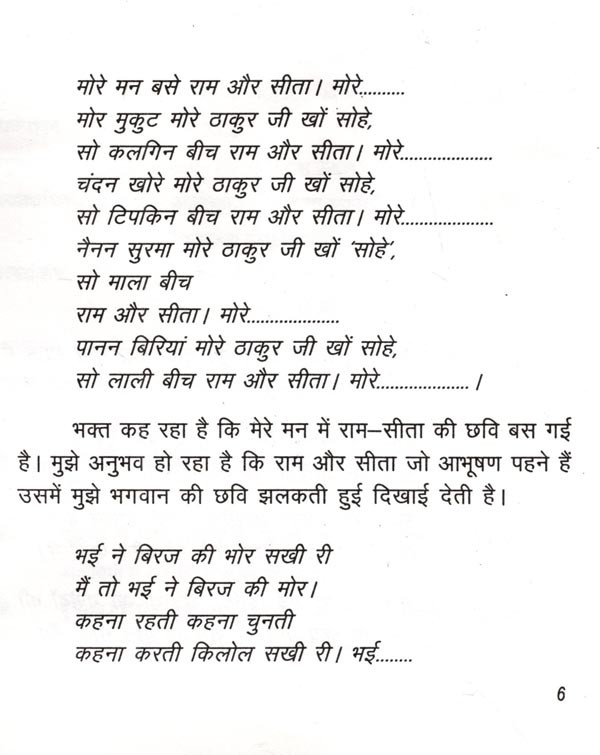 मोरे मन बसे राम और सीता। मोरे..........
मोर मुकुट मोरे ठाकुर जी खों सोहे,
सो कलगिन बीच राम और सीता। मोरे.....................
चंदन खोरे मोरे ठाकुर जी खों सोहे,
सो टिपकिन बीच राम और सीता। मोरे.....................
नैनन सुरमा मोरे ठाकुर जी खों ‘सोहे’,
सो माला बीच
राम और सीता। मोरे.....................
पानन बिरियां मोरे ठाकुर जी खों सोहे,
सो लाली बीच राम और सीता। मोरे.................... ।
भक्त कह रहा है कि मेरे मन में राम–सीता की छवि बस गई
है। मुझे अनुभव हो रहा है कि राम और सीता जो आभूषण पहने हैं
उसमें मुझे भगवान की छवि झलकती हुई दिखाई देती है।
भई ने बिरज की भोर सखी री
मैं तो भई ने बिरज की मोर।
कहना रहती कहना चुनती
कहना करती किलोल सखी री। भई........
6